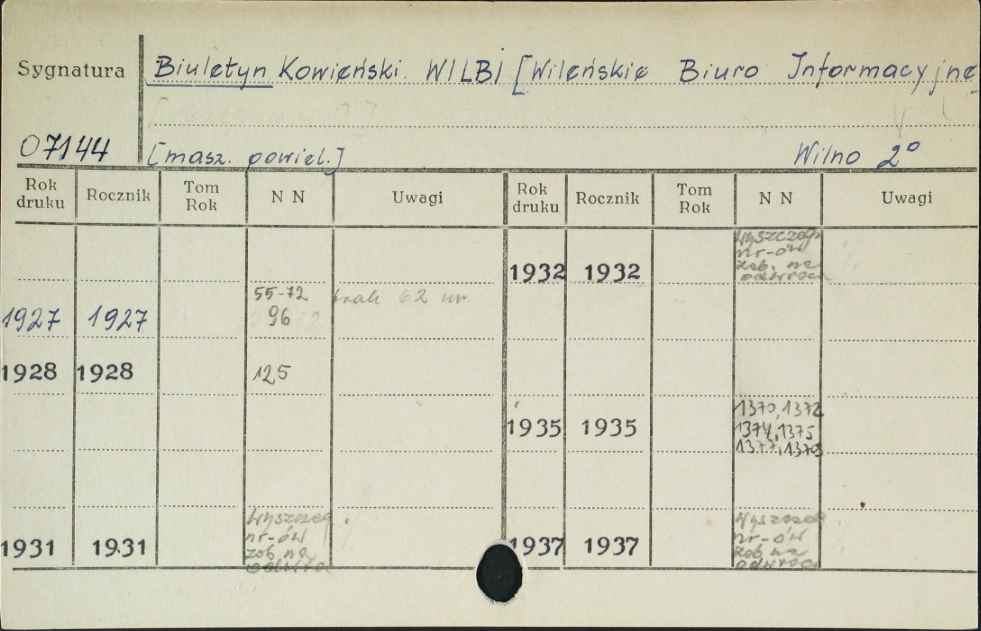 Sygnatura
Biuletyn Kowieński. WILBI [Wileńskie Biuro Informacyjne
07144
[masz. powiel.]
Wilno 2°
Rok druku Rocznik Tom Rok N N Uwagi Rok druku Rocznik Tom Rok N N Uwagi
1932 1932 Wyszczeg.
nr-ów
zob. na
odwrocie
1927 1927 55-72 brak 62 nr
96
1928 1928 125
1935 1935 1370, 1372
1374, 1375
1377, 1379
1931 1931 Wyszczeg.
nr-ów
zob. na
odwroc
1937 1937 Wyszczeg
nr-ów
zob. na
odwroci